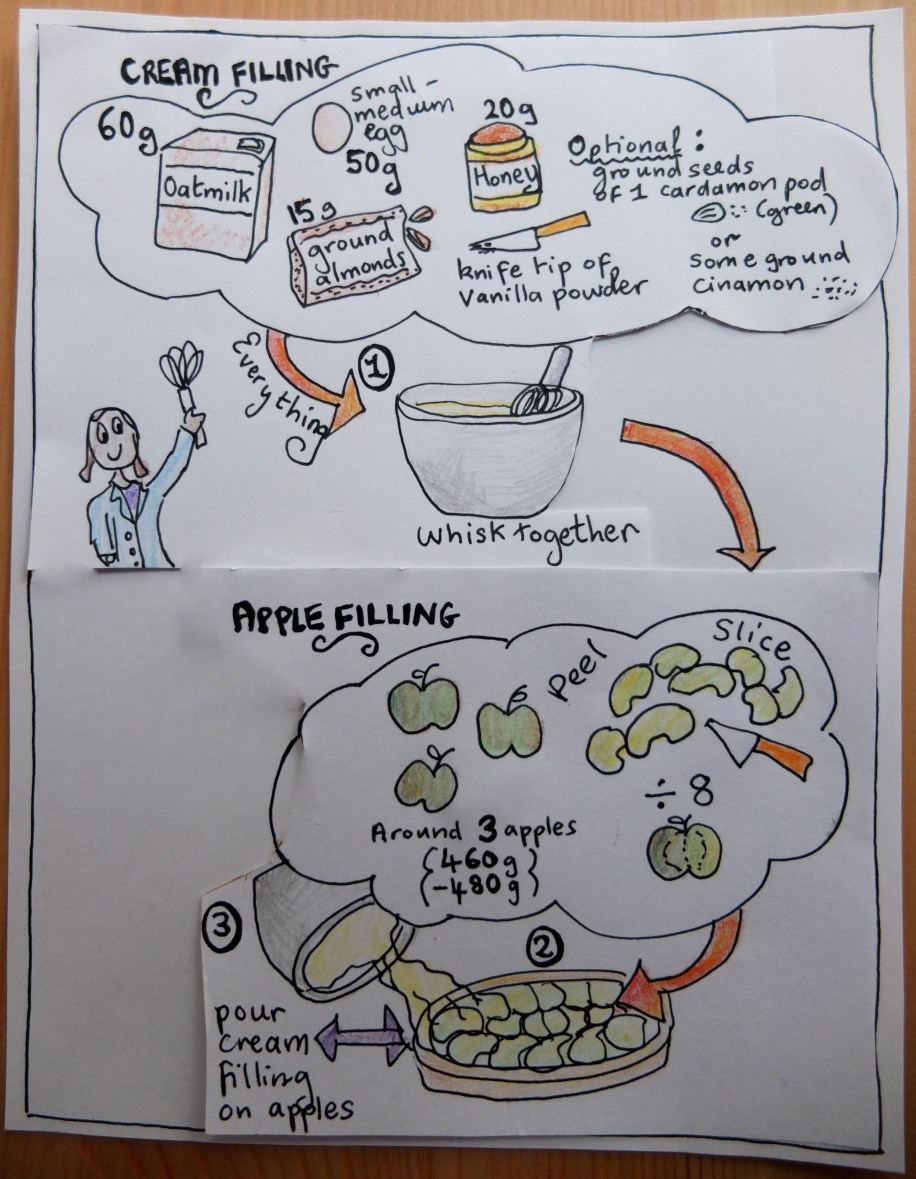 CREAM FILLING
60g
Oatmilk
small-
medium
egg
50g
15g
ground
almonds
20g
Honey
knife tip of
Vanilla powder
Optional:
ground seeds
of 1 cardamon pod
(green)
or
some ground
cinamon
Everything
1
whisk together
APPLE FILLING
peel
Slice
÷ 8
Around 3 apples
(460g)
(-480g)
2
3
pour
cream
filling
on apples